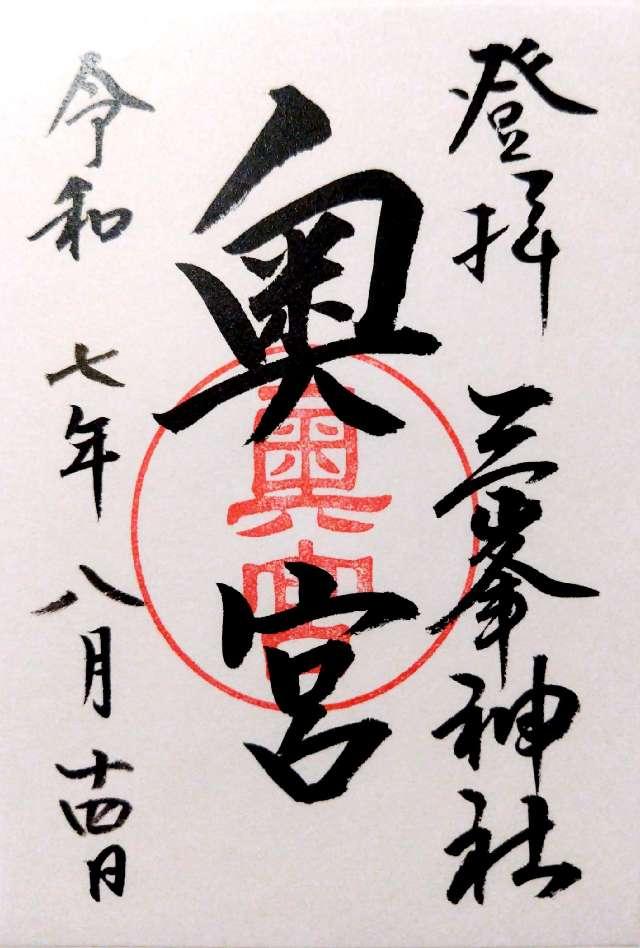 登拝 三峯神社
奥宮
奥宮
令和 七年 八月 十四日